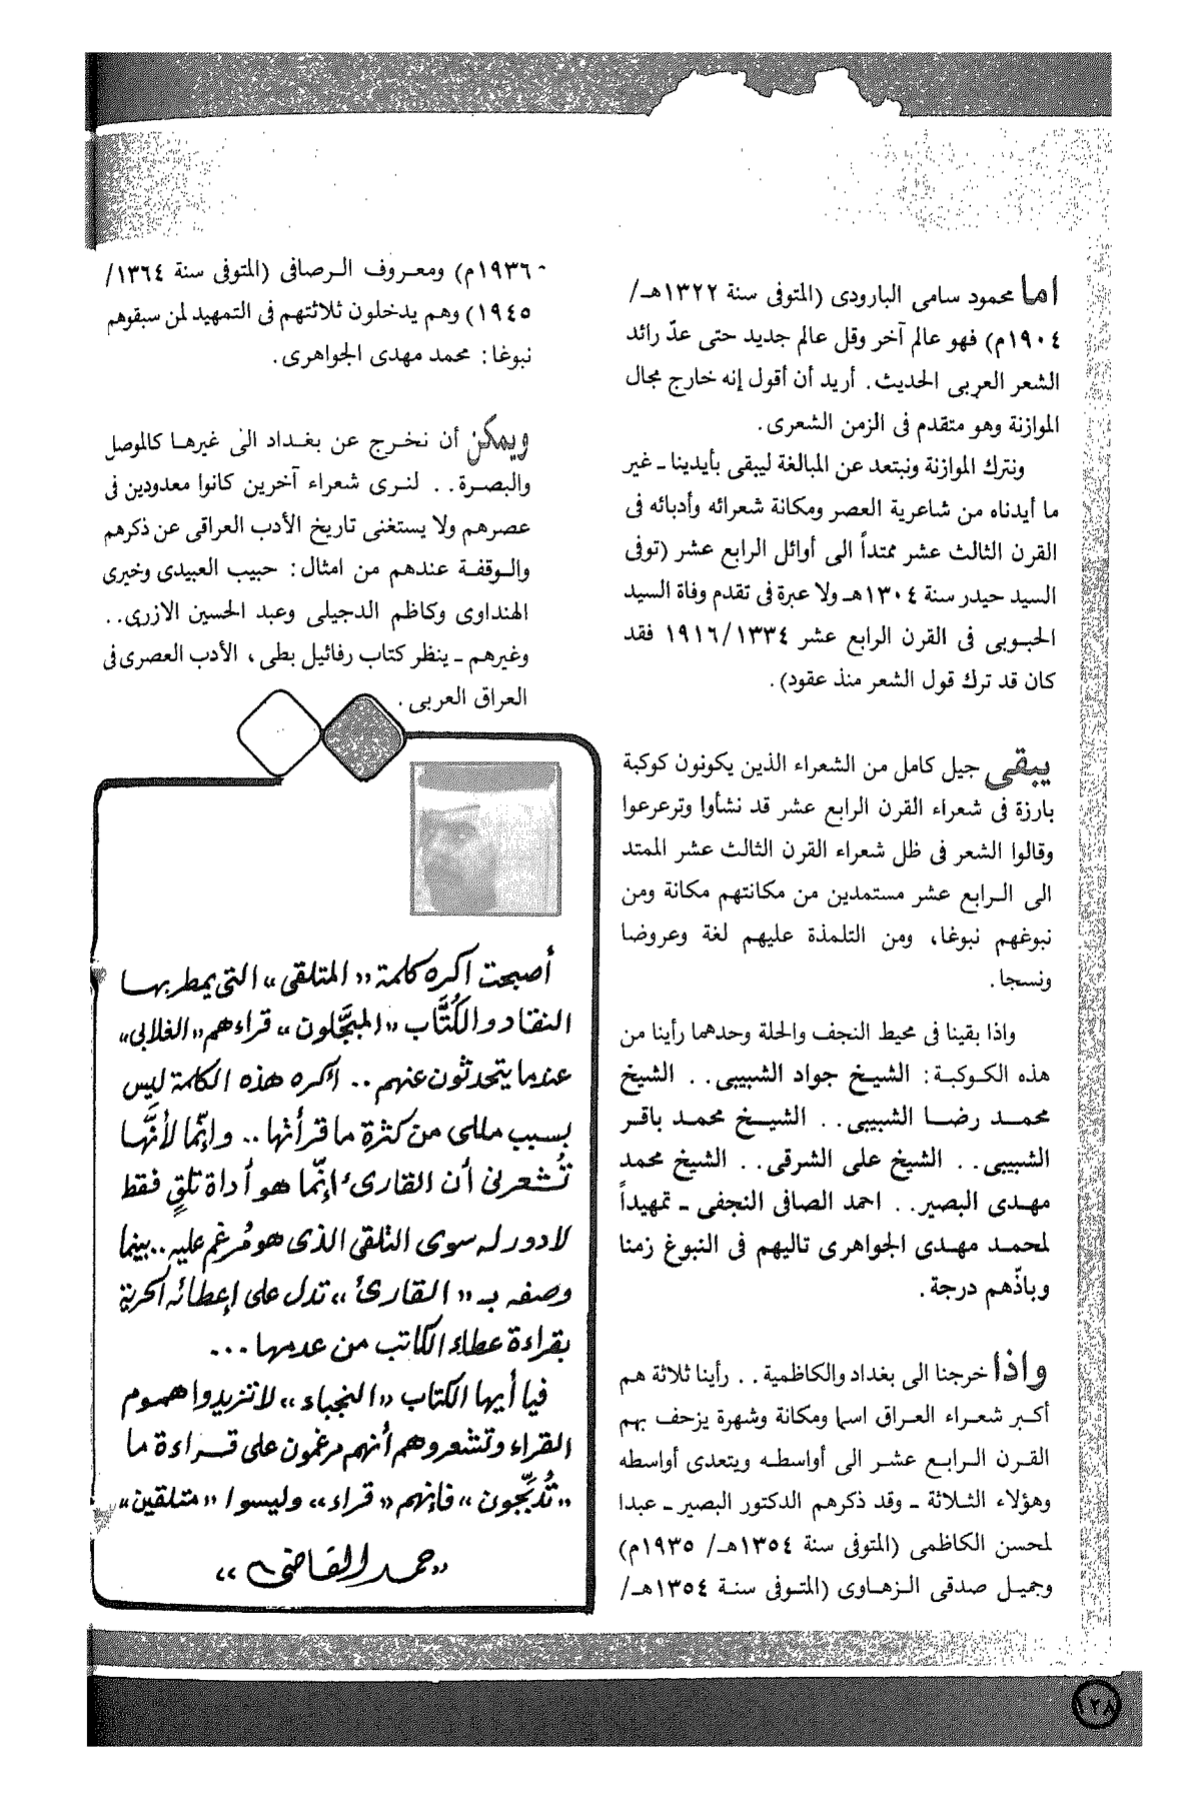 اما محمود سامى البارودى (المتوفى سنة ١٣٢٢هـ/
١٩٠٤م) فهو عالم آخر وقل عالم جديد حتى عدّ رائد
الشعر العربى الحديث. أريد أن أقول إنه خارج مجال
الموازنة وهو متقدم فى الزمن الشعرى.
ونترك الموازنة ونبتعد عن المبالغة ليبقى بأيدينا ـ غير
ما أيدناه من شاعرية العصر ومكانة شعرائه وأدبائه فى
القرن الثالث عشر ممتداً الى أوائل الرابع عشر (توفى
السيد حيدر سنة ١٣٠٤هـ ولا عبرة فى تقدم وفاة السيد
الحبوبى فى القرن الرابع عشر ١٩١٦/١٣٣٤ فقد
كان قد ترك قول الشعر منذ عقود).
يبقى جيل كامل من الشعراء الذين يكونون كوكبة
بارزة فى شعراء القرن الرابع عشر قد نشأوا وترعرعوا
وقالوا الشعر فى ظل شعراء القرن الثالث عشر الممتد
الى الرابع عشر مستمدين من مكانتهم مكانة ومن
نبوغهم نبوغا، ومن التلمذة عليهم لغة وعروضا
ونسجا.
واذا بقينا فى محيط النجف والحلة وحدهما رأينا من
هذه الكوكبة: الشيخ جواد الشبيبى.. الشيخ
محمد رضا الشبيبى.. الشيخ محمد باقر
الشبيبى.. الشيخ على الشرقى.. الشيخ محمد
مهدى البصير.. احمد الصافى النجفى ـ تمهيداً
لمحمد مهدى الجواهرى تاليهم فى النبوغ زمنا
وباذّهم درجة.
واذا خرجنا الى بغداد والكاظمية.. رأينا ثلاثة هم
أكبر شعراء العراق اسما ومكانة وشهرة يزحف بهم
القرن الرابع عشر الى أواسطه ويتعدى أواسطه
وهؤلاء الثلاثة ـ وقد ذكرهم الدكتور البصير ـ عبدا
لمحسن الكاظمى (المتوفى سنة ١٣٥٤هـ/ ١٩٣٥م)
وجميل صدقى الزهاوى (المتوفى سنة ١٣٥٤هـ/
١٩٣٦م) ومعروف الرصافى (المتوفى سنة ١٣٦٤/
١٩٤٥) وهم يدخلون ثلاثتهم فى التمهيد لمن سبقوهم
نبوغا: محمد مهدى الجواهرى.
ويمكن أن نخرج عن بغداد الى غيرها كالموصل
والبصرة.. لنرى شعراء آخرين كانوا معدودين فى
عصرهم ولا يستغنى تاريخ الأدب العراقى عن ذكرهم
والوقفة عندهم من امثال: حبيب العبيدى وخيرى
الهنداوى وكاظم الدجيلى وعبد الحسين الازرى..
وغيرهم ـ ينظر كتاب رفائيل بطى، الأدب العصرى فى
العراق العربى.
أصبحت اكره كلمة «المتلقى» التى يمطر بها
النقاد والكُتَّاب «المبجَّلون» قراءهم «الغلابى»
عندما يتحدثون عنهم.. اكره هذه الكلمة ليس
بسبب مللى من كثرة ما قرأتها.. وإنّما لأنَّها
تُشعرنى أن القارىء إنّما هو أداة تلقٍ فقط
لا دور له سوى التلقى الذى هو مُرغم عليه.. بينما
وصفه بـ «القارئ» تدل على إعطائه الحرية
بقراءة عطاء الكاتب من عدمها...
فيا أيها الكتاب «النجباء» لا تزيدوا هموم
القراء وتشعروهم أنهم مرغمون على قراءة ما
«تُدبِّجون» فإنهم «قراء» وليسوا «متلقين»
«حمد القاضى»
١٢٨